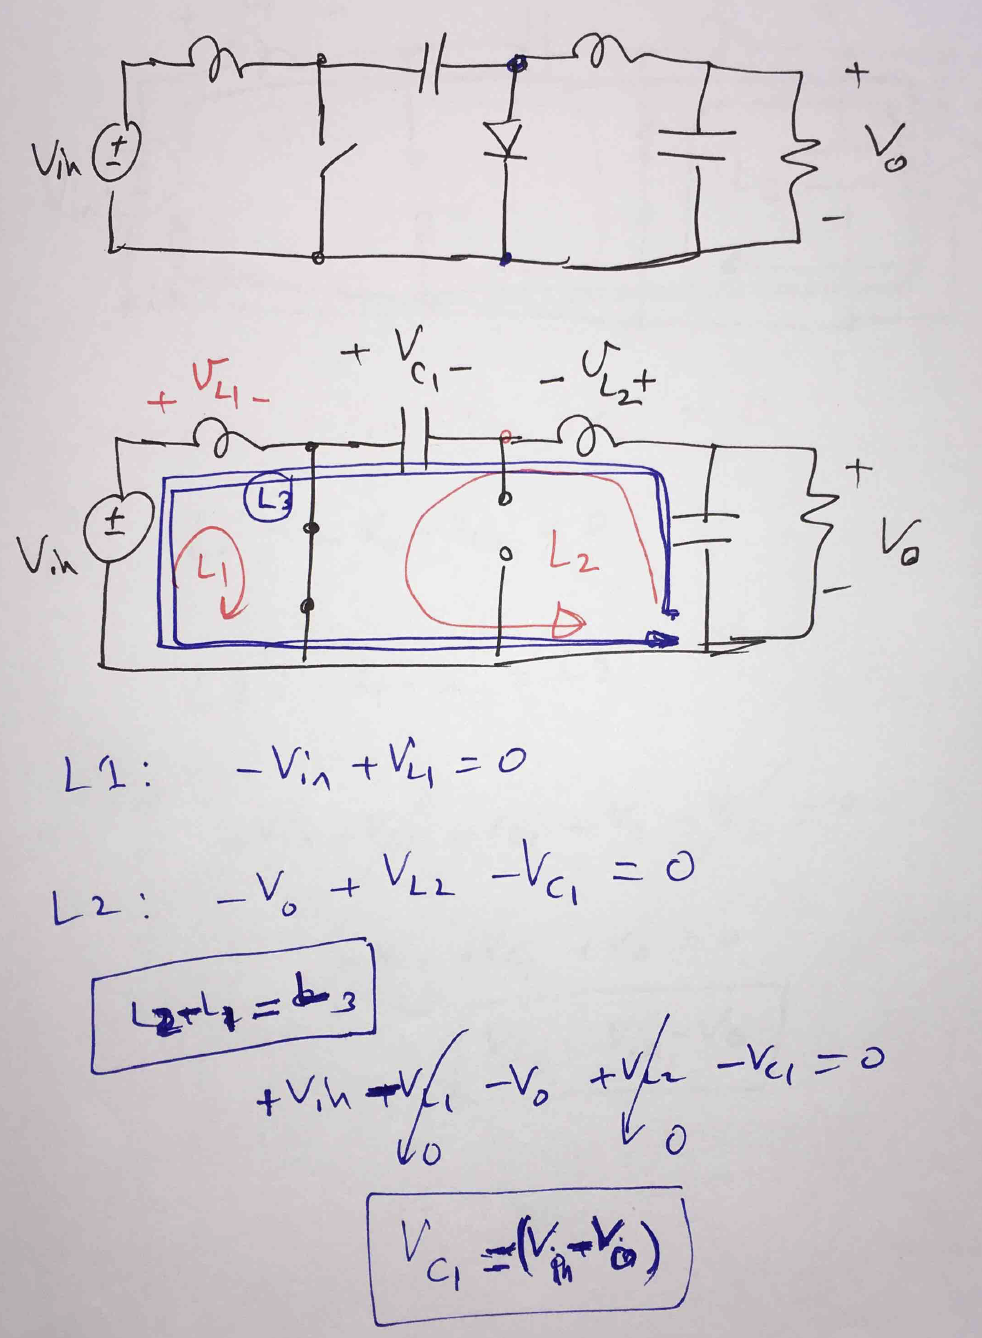 +
Vin ± Vo
-
+ VC1 -
+ VL1 -
- VL2 +
L3
+
Vin ± L1 L2 Vo
-
L1: -Vin + VL1 = 0
L2: -Vo + VL2 - VC1 = 0
L2-L1 = L3
+Vin -VL1 -Vo +VL2 -VC1 = 0
0 0
VC1 = (Vin-Vo)